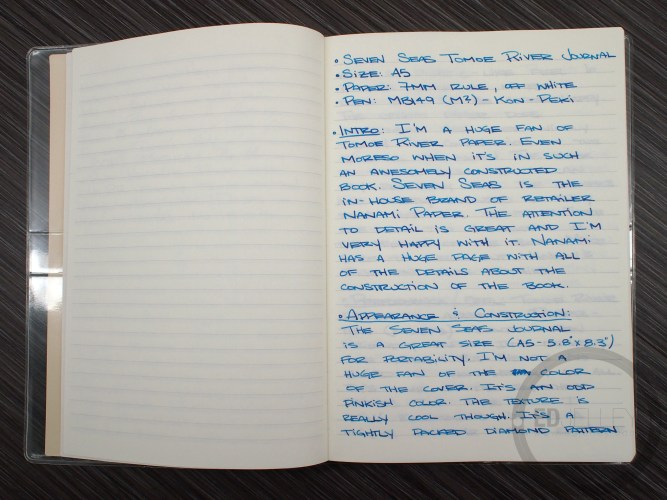 • SEVEN SEAS TOMOE RIVER JOURNAL
• SIZE: A5
• PAPER: 7MM RULE, OFF WHITE
• PEN: MB149 (M³) - KON-PEKI
• INTRO: I'M A HUGE FAN OF
TOMOE RIVER PAPER. EVEN
MORESO WHEN IT'S IN SUCH
AN AWESOMELY CONSTRUCTED
BOOK. SEVEN SEAS IS THE
IN-HOUSE BRAND OF RETAILER
NANAMI PAPER. THE ATTENTION
TO DETAIL IS GREAT AND I'M
VERY HAPPY WITH IT. NANAMI
HAS A HUGE PAGE WITH ALL
OF THE DETAILS ABOUT THE
CONSTRUCTION OF THE BOOK.
• APPEARANCE & CONSTRUCTION:
THE SEVEN SEAS JOURNAL
IS A GREAT SIZE (A5 - 5.8"x8.3")
FOR PORTABILITY. I'M NOT A
HUGE FAN OF THE COLOR
OF THE COVER. IT'S AN ODD
PINKISH COLOR. THE TEXTURE IS
REALLY COOL THOUGH. IT'S A
TIGHTLY PACKED DIAMOND PATTERN
ED